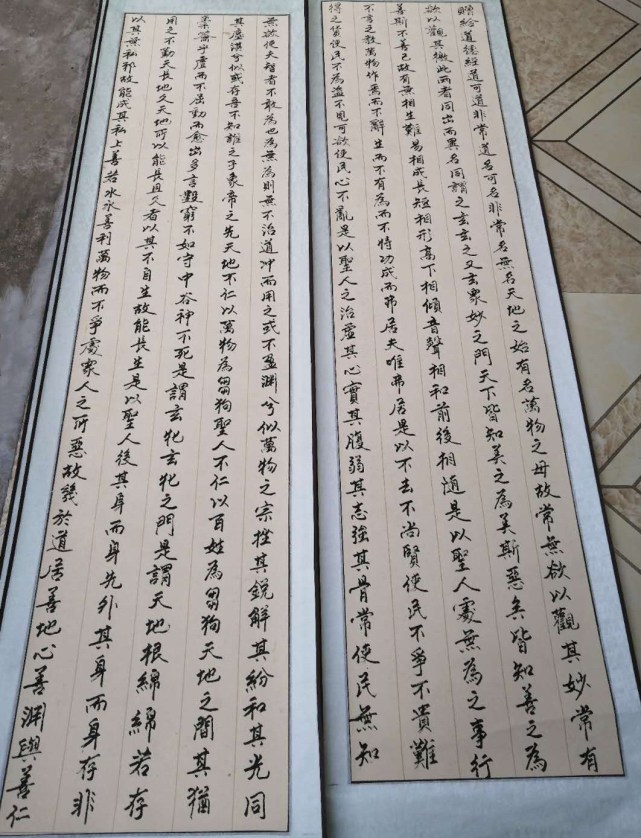 贈給道德經道可道非常道名可名非常名無名天地之始有名萬物之母故常無欲以觀其妙常有
欲以觀其徼此兩者同出而異名同謂之玄玄之又玄眾妙之門天下皆知美之為美斯惡矣皆知善之為
善斯不善已故有無相生難易相成長短相形高下相傾音聲相和前後相隨是以聖人處無為之事行
不言之教萬物作焉而不辭生而不有為而不恃功成而弗居夫唯弗居是以不去不尚賢使民不爭不貴難
得之貨使民不為盜不見可欲使民心不亂是以聖人之治虛其心實其腹弱其志強其骨常使民無知
無欲使夫智者不敢為也為無為則無不治道冲而用之或不盈淵兮似萬物之宗挫其銳解其紛和其光同
其塵湛兮似或存吾不知誰之子象帝之先天地不仁以萬物為芻狗聖人不仁以百姓為芻狗天地之間其猶
橐籥乎虛而不屈動而愈出多言數窮不如守中谷神不死是謂玄牝玄牝之門是謂天地根綿綿若存
用之不勤天長地久天地所以能長且久者以其不自生故能長生是以聖人後其身而身先外其身而身存非
以其無私邪故能成其私上善若水水善利萬物而不爭處眾人之所惡故幾於道居善地心善淵與善仁